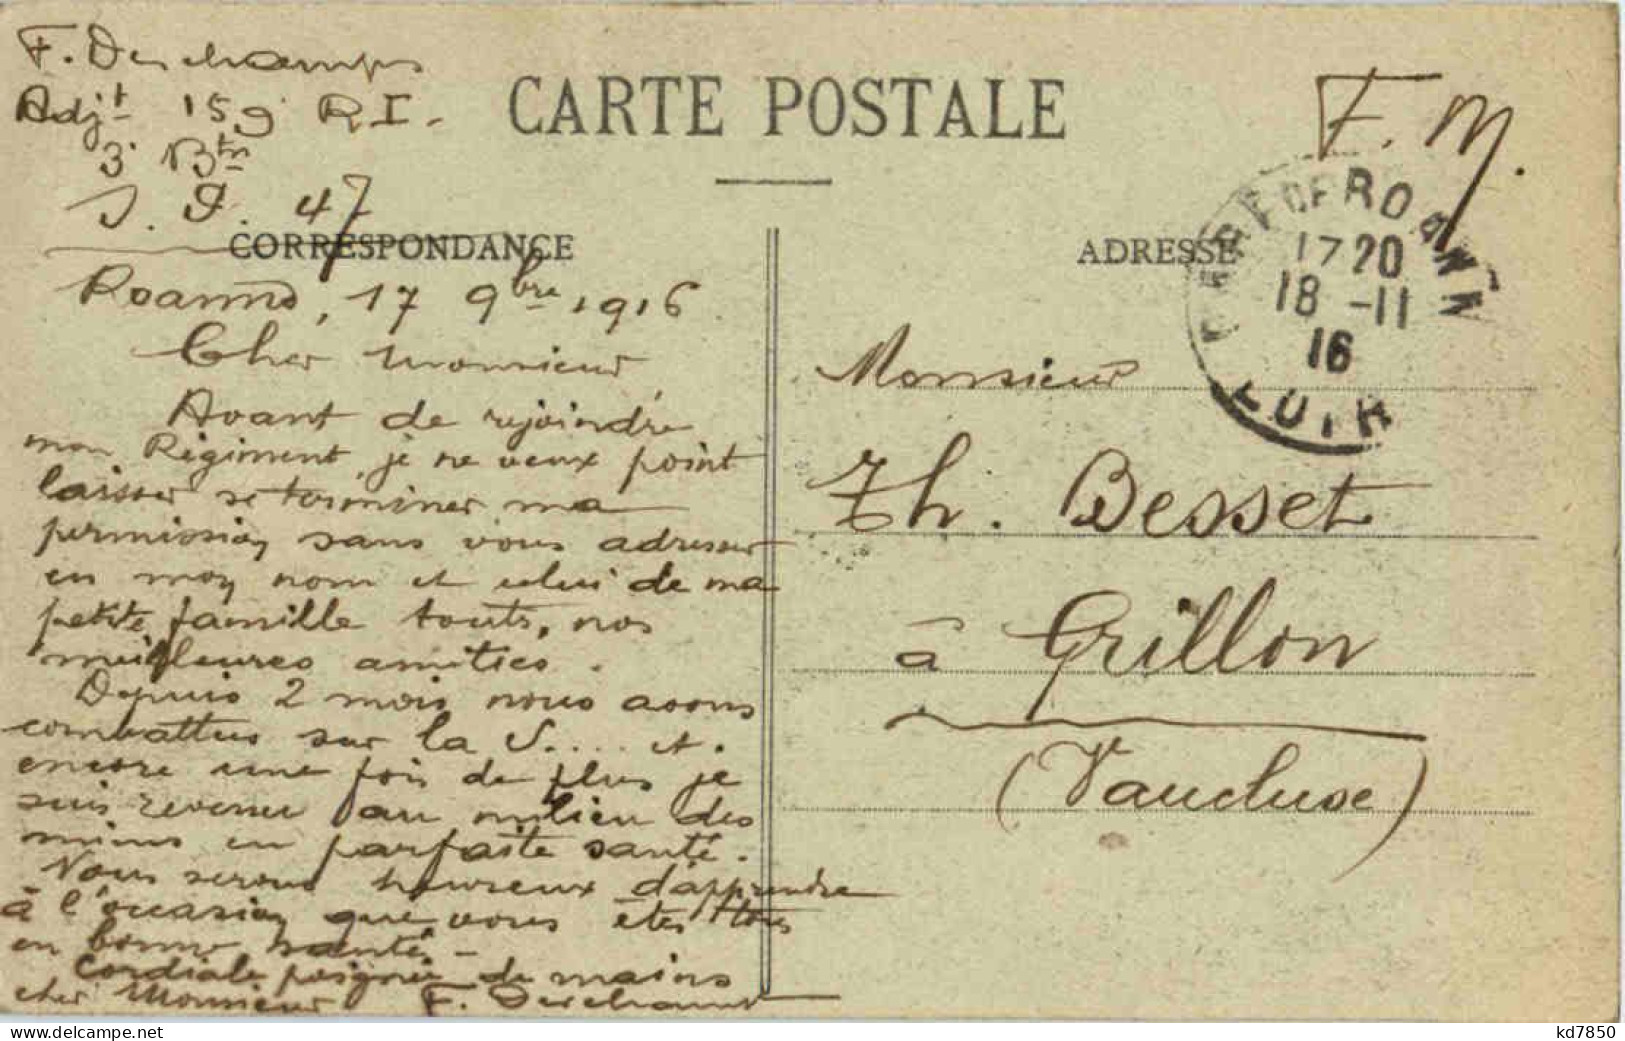 F. Deschamps
Adjt 159 R.I.
3e Btn
S. P. 47
CARTE POSTALE
F. M.
CORRESPONDANCE
ADRESSE
GARE DE ROANNE
17 20
18 -11
16
LOIRE
Roanne, 17 9bre 1916
Cher Monsieur,
Avant de rejoindre
mon Régiment, je ne veux point
laisser se terminer ma
permission sans vous adresser
en mon nom et celui de ma
petite famille touts, nos
meilleures amities.
Depuis 2 mois nous avons
combattus sur la S.... et.
encore une fois de plus je
suis revenu au milieu des
miens en parfaite santé.
Nous serons heureux d'apprendre
à l'occasion que vous êtes tous
en bonne santé. -
Cordiale poignée de mains
cher Monsieur F. Deschamps
Monsieur
Th. Besset
à Grillon
(Vaucluse)
kd7850